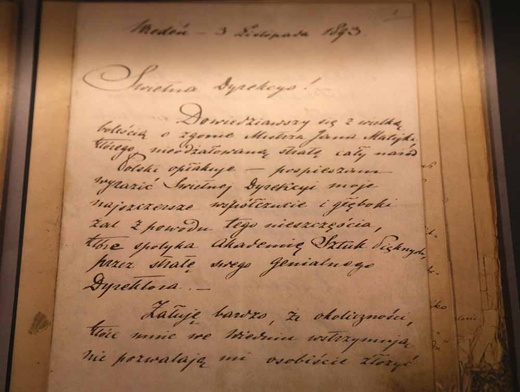 Wiedeń – 3 Listopada 1893.
Świetna Dyrekcyo!
Dowiedziawszy się z wielką
boleścią o zgonie Mistrza Jana Matejki
którego, nieodżałowaną stratę cały naród
Polski opłakuje – pospieszam
wyrazić Świetnej Dyrekcyi moje
najszczersze współczucie i głęboki
żal z powodu tego nieszczęścia,
które spotyka Akademię Sztuk Pięknych,
przez stratę swego genialnego
Dyrektora. –
Żałuję bardzo, że okoliczności,
które mnie we Wiedniu wstrzymują
nie pozwalają mi osobiście złożyć